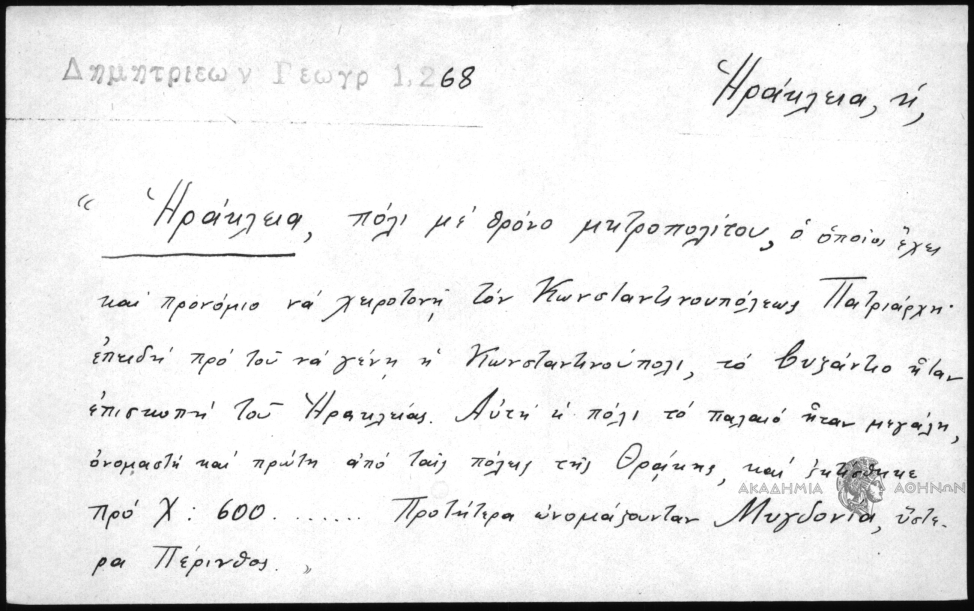 Δημητριεων Γεωγρ 1,268
Ἡράκλεια, ἡ,
“ Ἡράκλεια, πόλι μέ θρόνο μητροπολίτου, ὁ ὁποῖος ἔχει
καί προνόμιο νά χειροτονῇ τόν Κωνσταντινουπόλεως Πατριάρχη·
ἐπειδή πρό τοῦ νά γένῃ ἡ Κωνσταντινούπολι, τό Βυζάντιο ἦταν
ἐπισκοπή τοῦ Ἡρακλείας. Αὐτή ἡ πόλι τό παλαιό ἦταν μεγάλη,
ὀνομαστή καί πρώτη ἀπό ταῖς πόλεις τῆς Θράκης, καί ἐκτίσθηκε
πρό Χ: 600....... Προτήτερα ὠνομάζουνταν Μυγδονία, ὕστε-
ρα Πέρινθος. „
ΑΚΑΔΗΜΙΑ ΑΘΗΝΩΝ